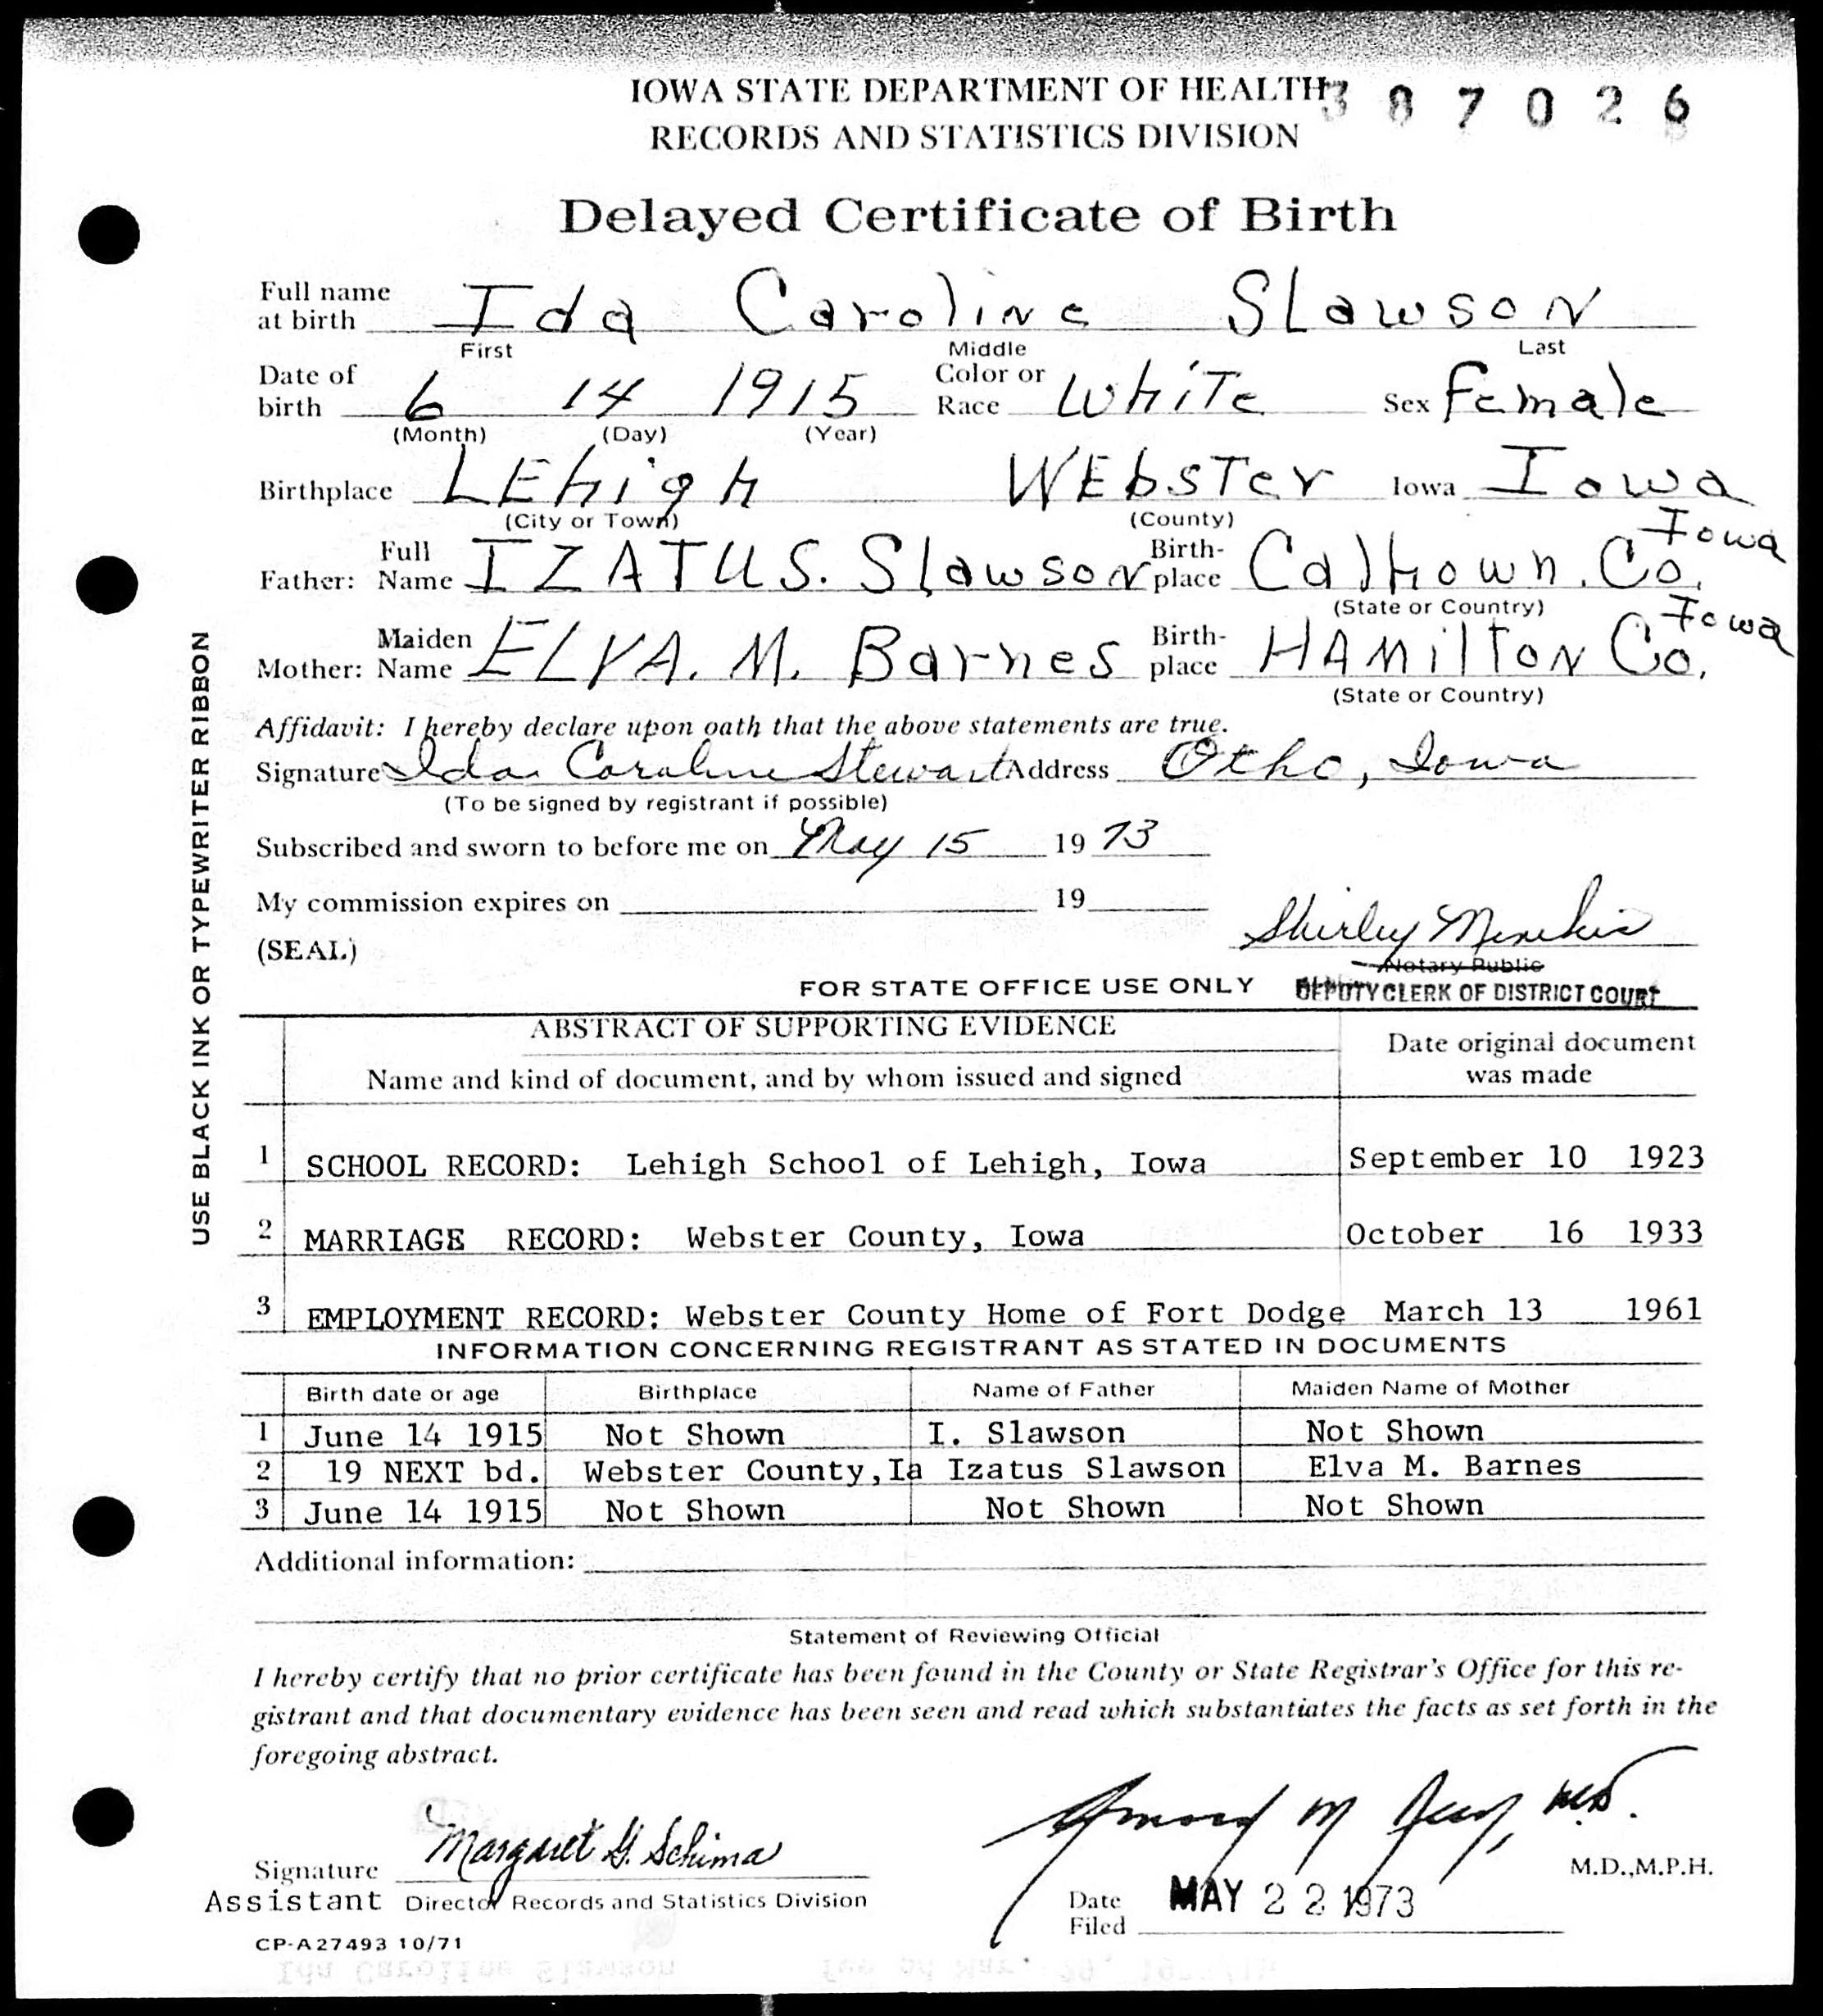 IOWA STATE DEPARTMENT OF HEALTH 387026
RECORDS AND STATISTICS DIVISION
Delayed Certificate of Birth
Full name at birth Ida Caroline Slawson
First Middle Last
Date of birth 6 14 1915 Color or Race White Sex Female
(Month) (Day) (Year)
Birthplace LEhigh WEbster Iowa Iowa
(City or Town) (County)
Father: Full Name IZATUS. Slawson Birth-place Calhown. Co. Iowa
(State or Country)
Mother: Maiden Name ELVA. M. Barnes Birth-place HAMilToN Co. Iowa
(State or Country)
Affidavit: I hereby declare upon oath that the above statements are true.
Signature Ida Caroline Stewart Address Otho, Iowa
(To be signed by registrant if possible)
Subscribed and sworn to before me on May 15 19 73
My commission expires on 19
(SEAL) Shirley
Notary Public
FOR STATE OFFICE USE ONLY DEPUTY CLERK OF DISTRICT COURT
ABSTRACT OF SUPPORTING EVIDENCE
Name and kind of document, and by whom issued and signed Date original document was made
1 SCHOOL RECORD: Lehigh School of Lehigh, Iowa September 10 1923
2 MARRIAGE RECORD: Webster County, Iowa October 16 1933
3 EMPLOYMENT RECORD: Webster County Home of Fort Dodge March 13 1961
INFORMATION CONCERNING REGISTRANT AS STATED IN DOCUMENTS
Birth date or age Birthplace Name of Father Maiden Name of Mother
1 June 14 1915 Not Shown I. Slawson Not Shown
2 19 NEXT bd. Webster County,Ia Izatus Slawson Elva M. Barnes
3 June 14 1915 Not Shown Not Shown Not Shown
Additional information:
Statement of Reviewing Official
I hereby certify that no prior certificate has been found in the County or State Registrar's Office for this re-
gistrant and that documentary evidence has been seen and read which substantiates the facts as set forth in the
foregoing abstract.
Signature Margaret G. Schima
M.D.,M.P.H.
Assistant Director Records and Statistics Division
Date Filed MAY 22 1973
CP-A27493 10/71
USE BLACK INK OR TYPEWRITER RIBBON